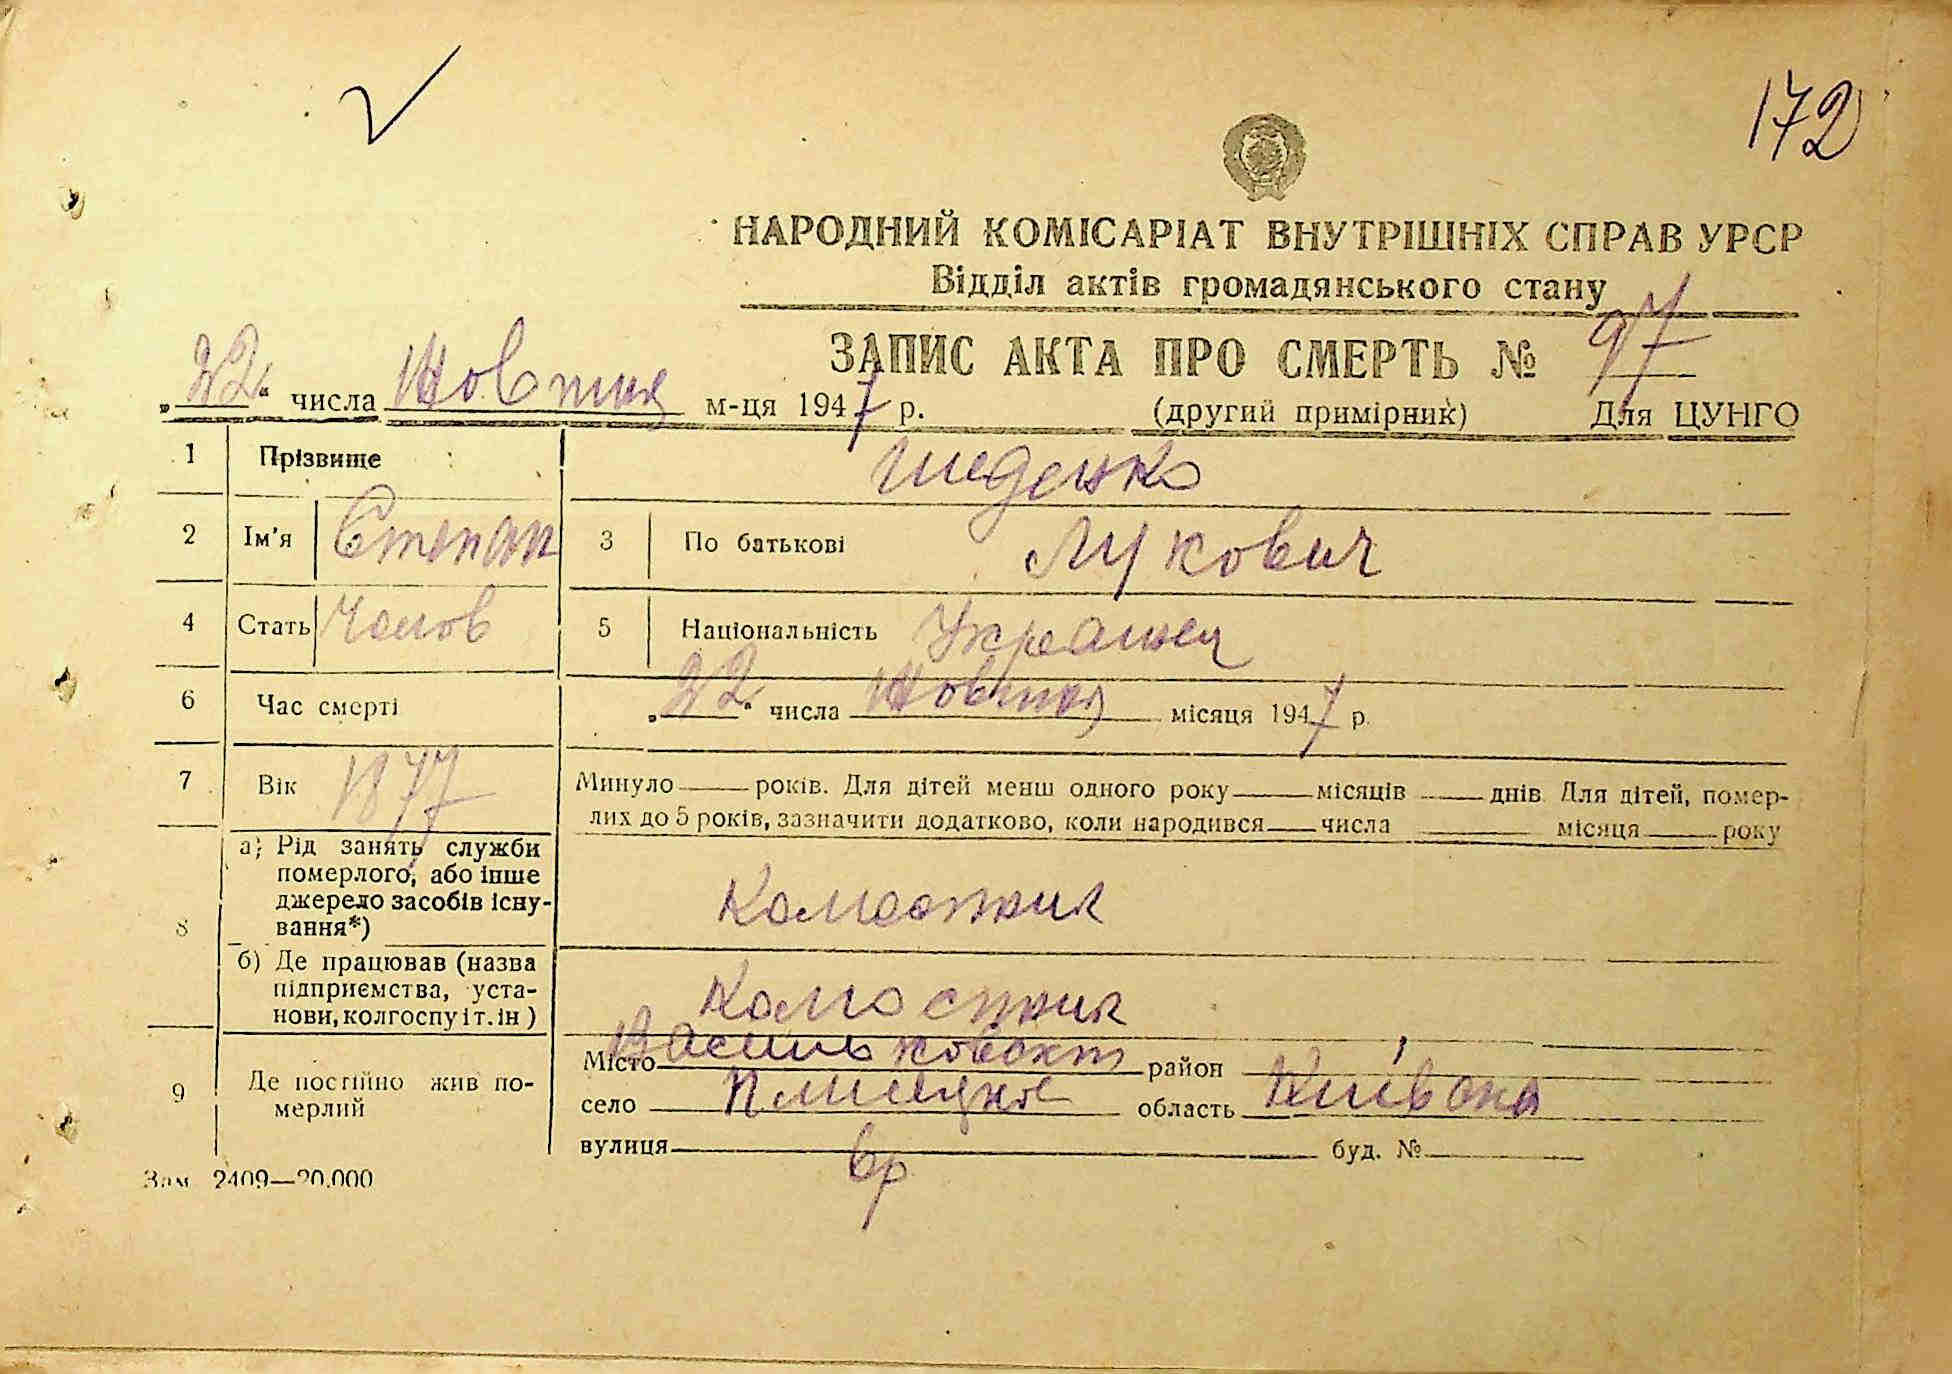 172
НАРОДНИЙ КОМІСАРІАТ ВНУТРІШНІХ СПРАВ УРСР
Відділ актів громадянського стану
ЗАПИС АКТА ПРО СМЕРТЬ № 97
„22“ числа Жовтня м-ця 1947 р. (другий примірник) Для ЦУНГО
1 Прізвище Шеденко
2 Ім'я Степан 3 По батькові Лукович
4 Стать Чолов 5 Національність Українец
6 Час смерті „22“ числа Жовтня місяця 1947 р.
7 Вік 1877 Минуло року. Для дітей менш одного року місяців днів Для дітей, помер-
лих до 5 років, зазначити додатково, коли народився числа місяця року
8 а) Рід занять служби
померлого, або інше
джерело засобів існу-
вання*)
б) Де працював (назва
підприємства, уста-
нови, колгоспу і т. ін)
9 Де постійно жив по-
мерлий
Місто район
село область Київска
вулиця буд. №
Зам 2409—20.000